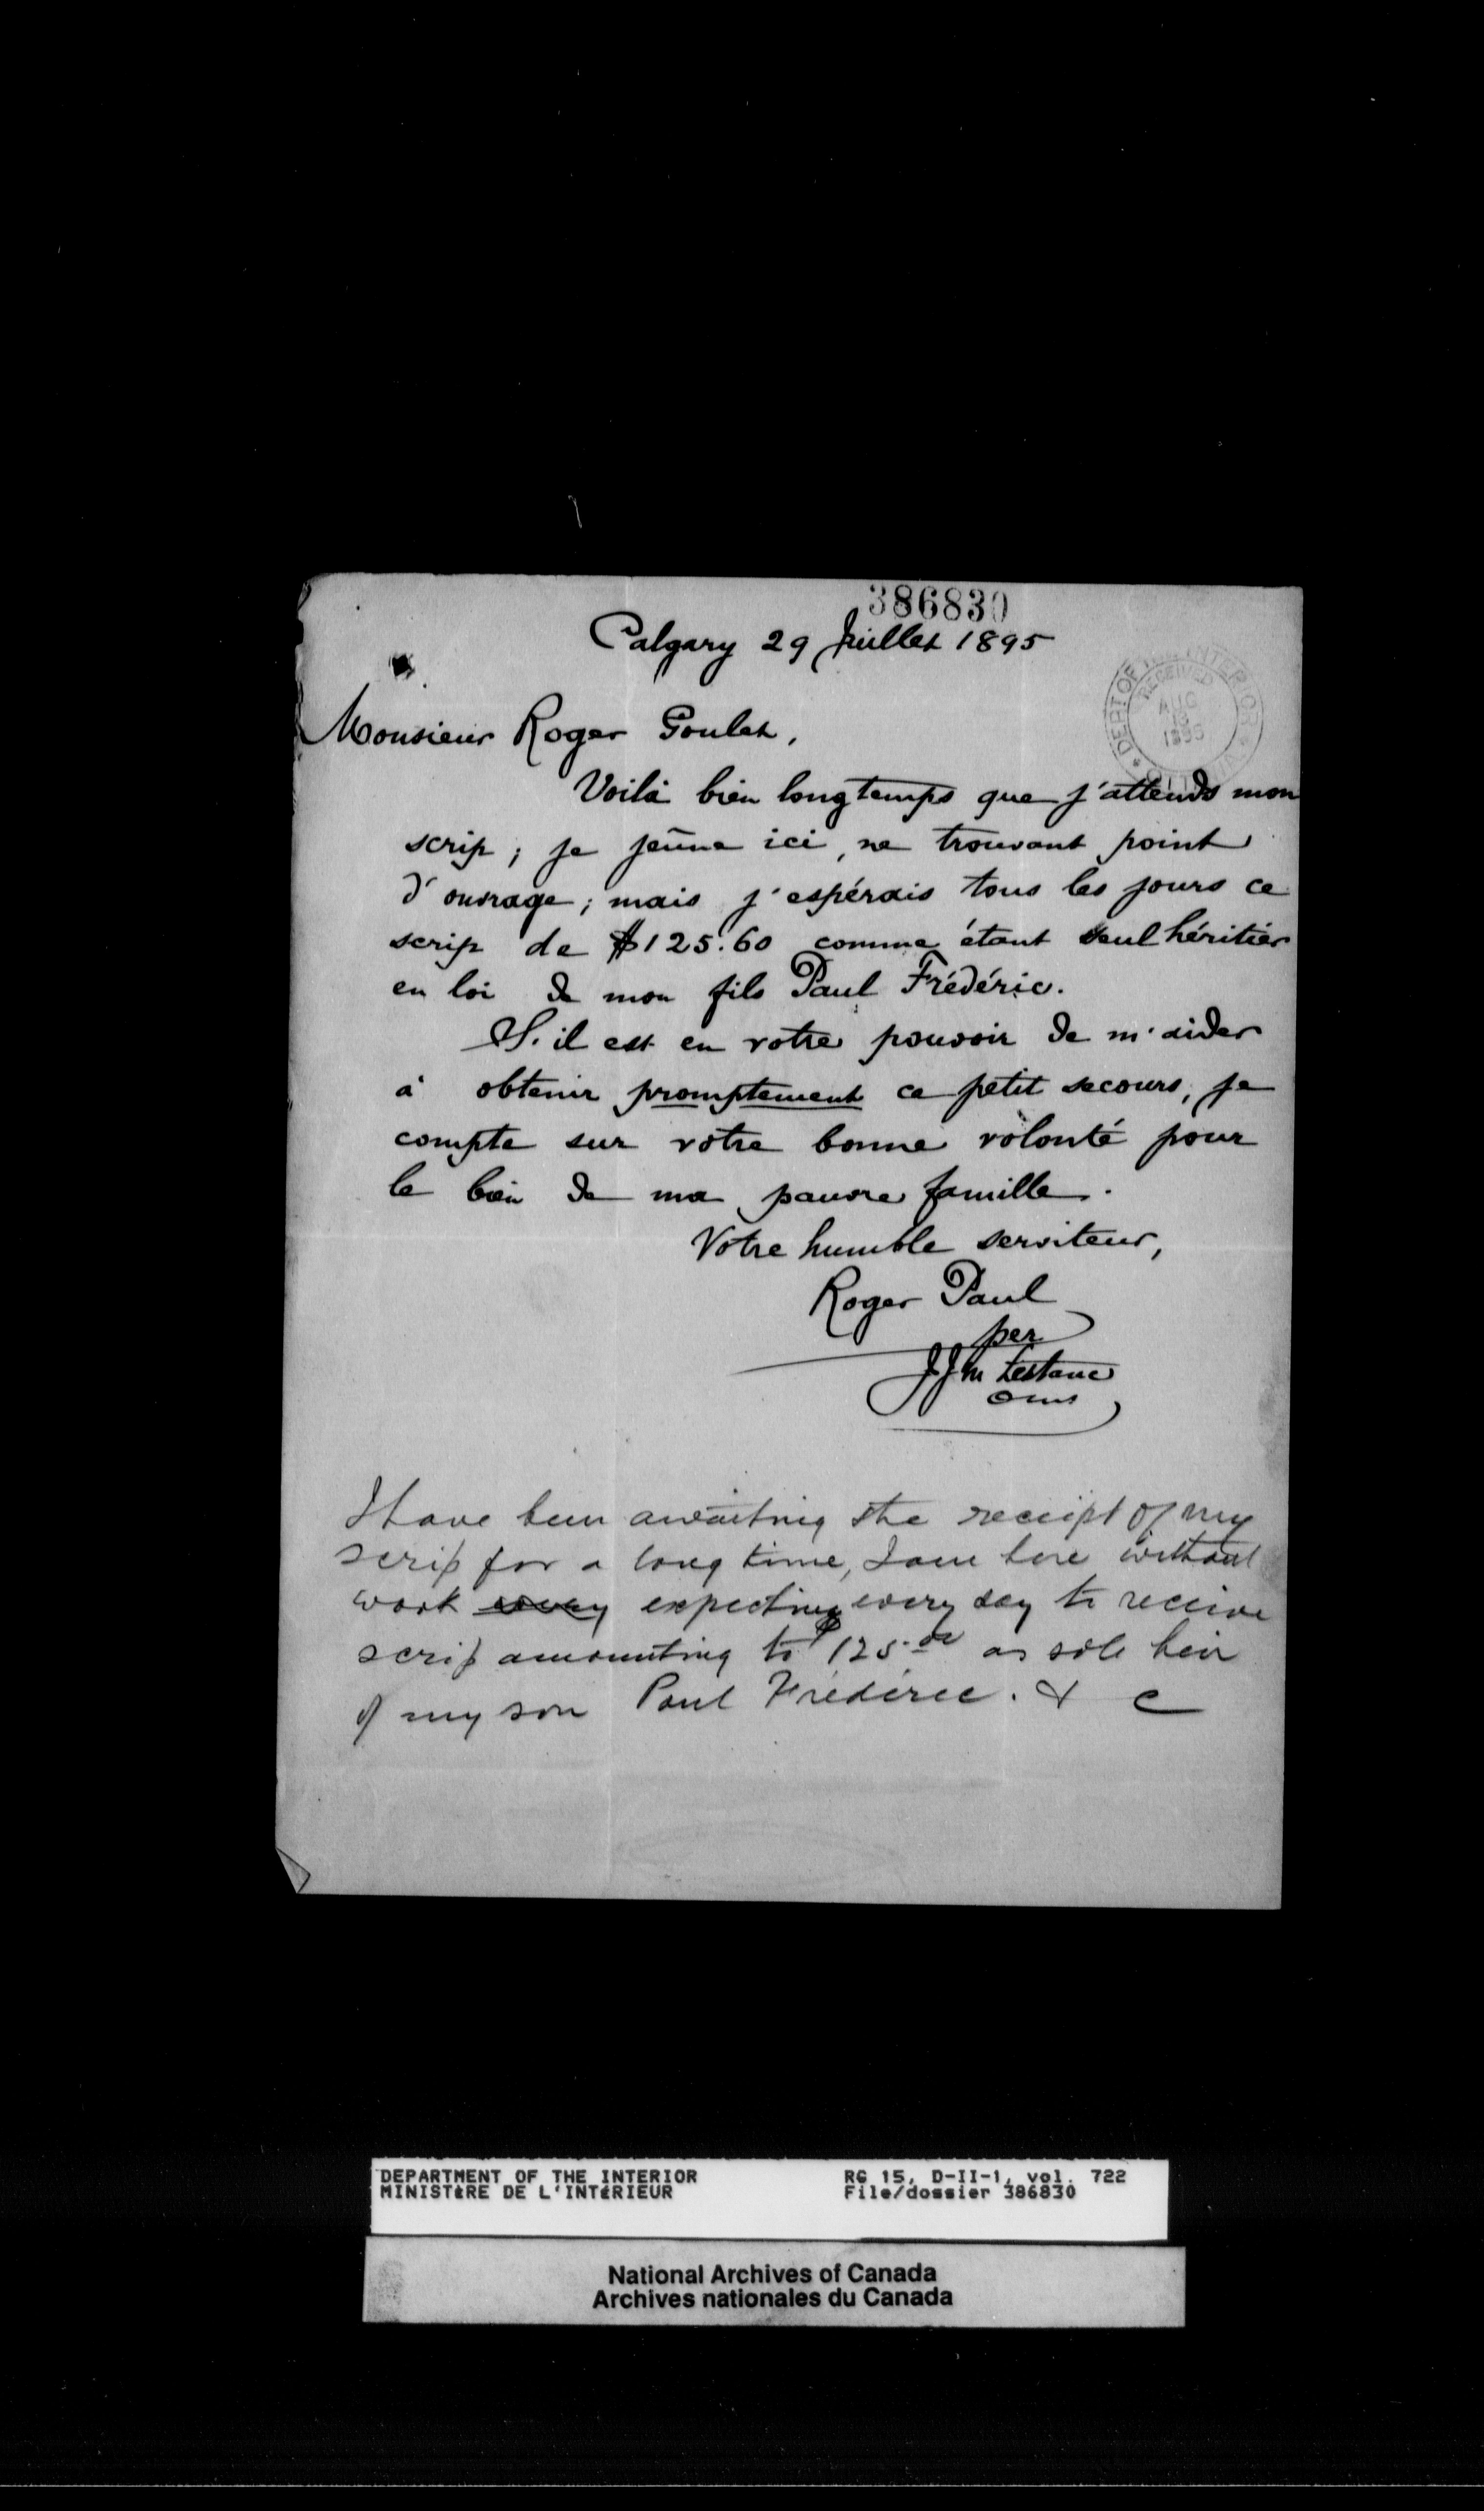 386830
Calgary 29 Juillet 1895
DEPT OF THE INTERIOR
RECEIVED
AUG
13
1895
Monsieur Roger Goulet,
Voilà bien longtemps que j'attends mon
scrip; je jeûne ici, ne trouvant point
d'ouvrage; mais j'espérais tous les jours ce
scrip de $125.60 comme étant seul héritier
en loi de mon fils Paul Frédéric.
S'il est en votre pouvoir de m'aider
à obtenir promptement ce petit secours, je
compte sur votre bonne volonté pour
le bien de ma pauvre famille.
Votre humble serviteur,
Roger Paul
per
J J M Lestanc
omi
I have been awaiting the receipt of my
scrip for a long time, I am here without
work every expecting every day to receive
scrip amounting to $125.00 as sole heir
of my son Paul Frédéric. & c
DEPARTMENT OF THE INTERIOR
MINISTèRE DE L'INTéRIEUR
RG 15, D-II-1, vol. 722
File/dossier 386830
National Archives of Canada
Archives nationales du Canada